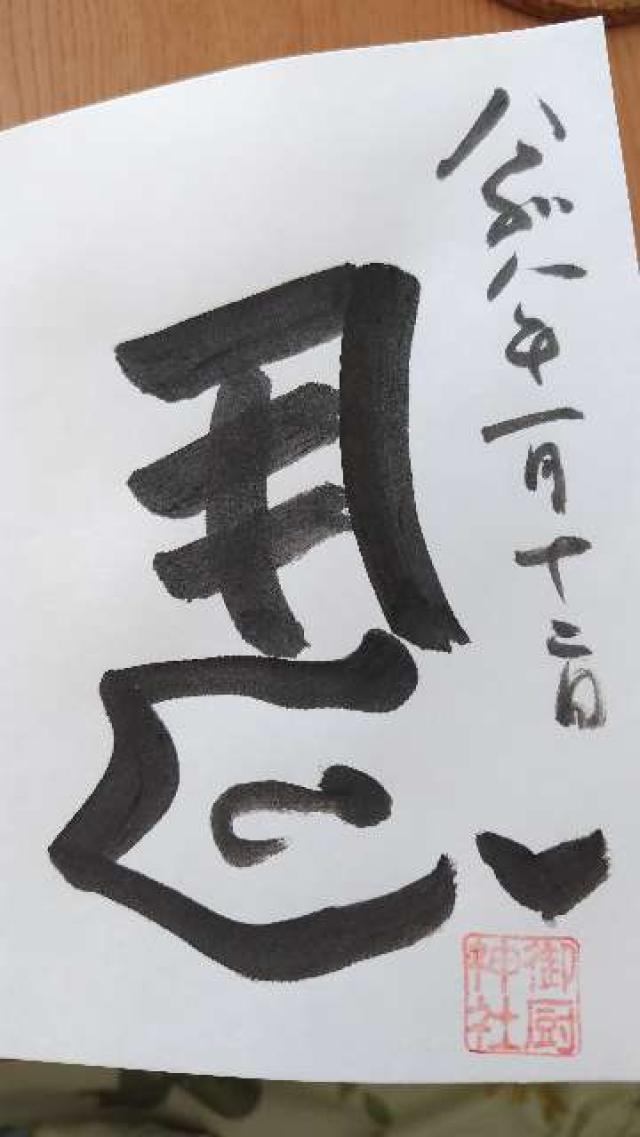 令和八年一月十二日
馬
御厨
神社